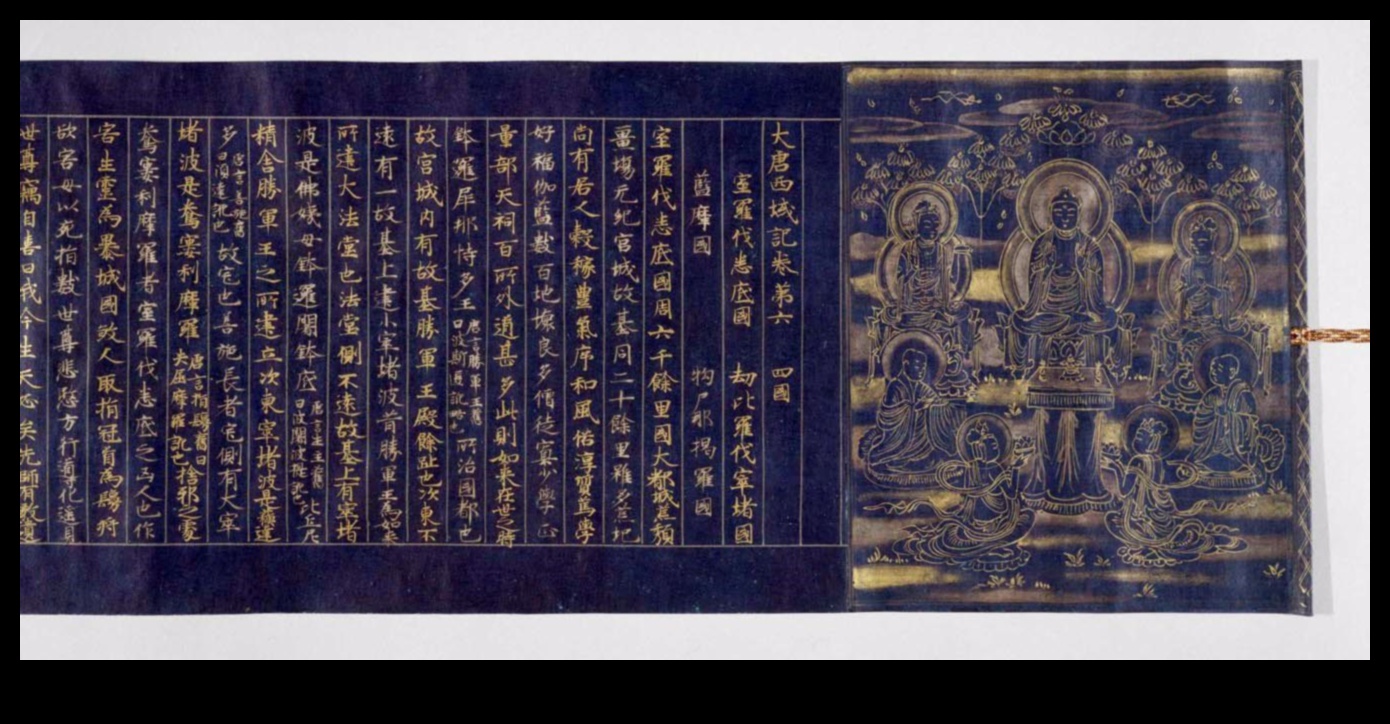 大唐西域記卷第六　四國
室羅伐悉底國　劫比羅伐窣堵國
藍摩國　拘尸那揭羅國
室羅伐悉底國周六千餘里國大都城荒頹
畺場无紀宮城故基同二十餘里雖多荒圮
尚有居人穀稼豐氣序和風俗淳質篤學
好福伽藍數百圮壞良多僧徒寡少學正
量部天祠百所外道甚多此則如來在世之時
鉢羅犀那恃多王唐言勝軍王舊曰波斯匿訛略也所治國都也
故宮城內有故基勝軍王殿餘趾也次東不
遠有一故基上建小窣堵波昔勝軍王為如來
所建大法堂也法堂側不遠故基上有窣堵
波是佛姨母鉢邏闍鉢底唐言生主舊曰波闍波提訛苾芻尼
精舍勝軍王之所建立次東窣堵波是蘇達
多唐言善施舊曰須達訛也故宅也善施長者宅側有大窣
堵波是鴦窶利摩羅唐言指鬘舊曰央崛摩羅訛也捨邪之處
鴦窶利摩羅者室羅伐悉底之凶人也作
害生靈為暴城國殺人取指冠首為鬘將
欲害母以充指數世尊悲愍方行導化遙見
世尊竊自喜曰我今生天必矣先師有教遺